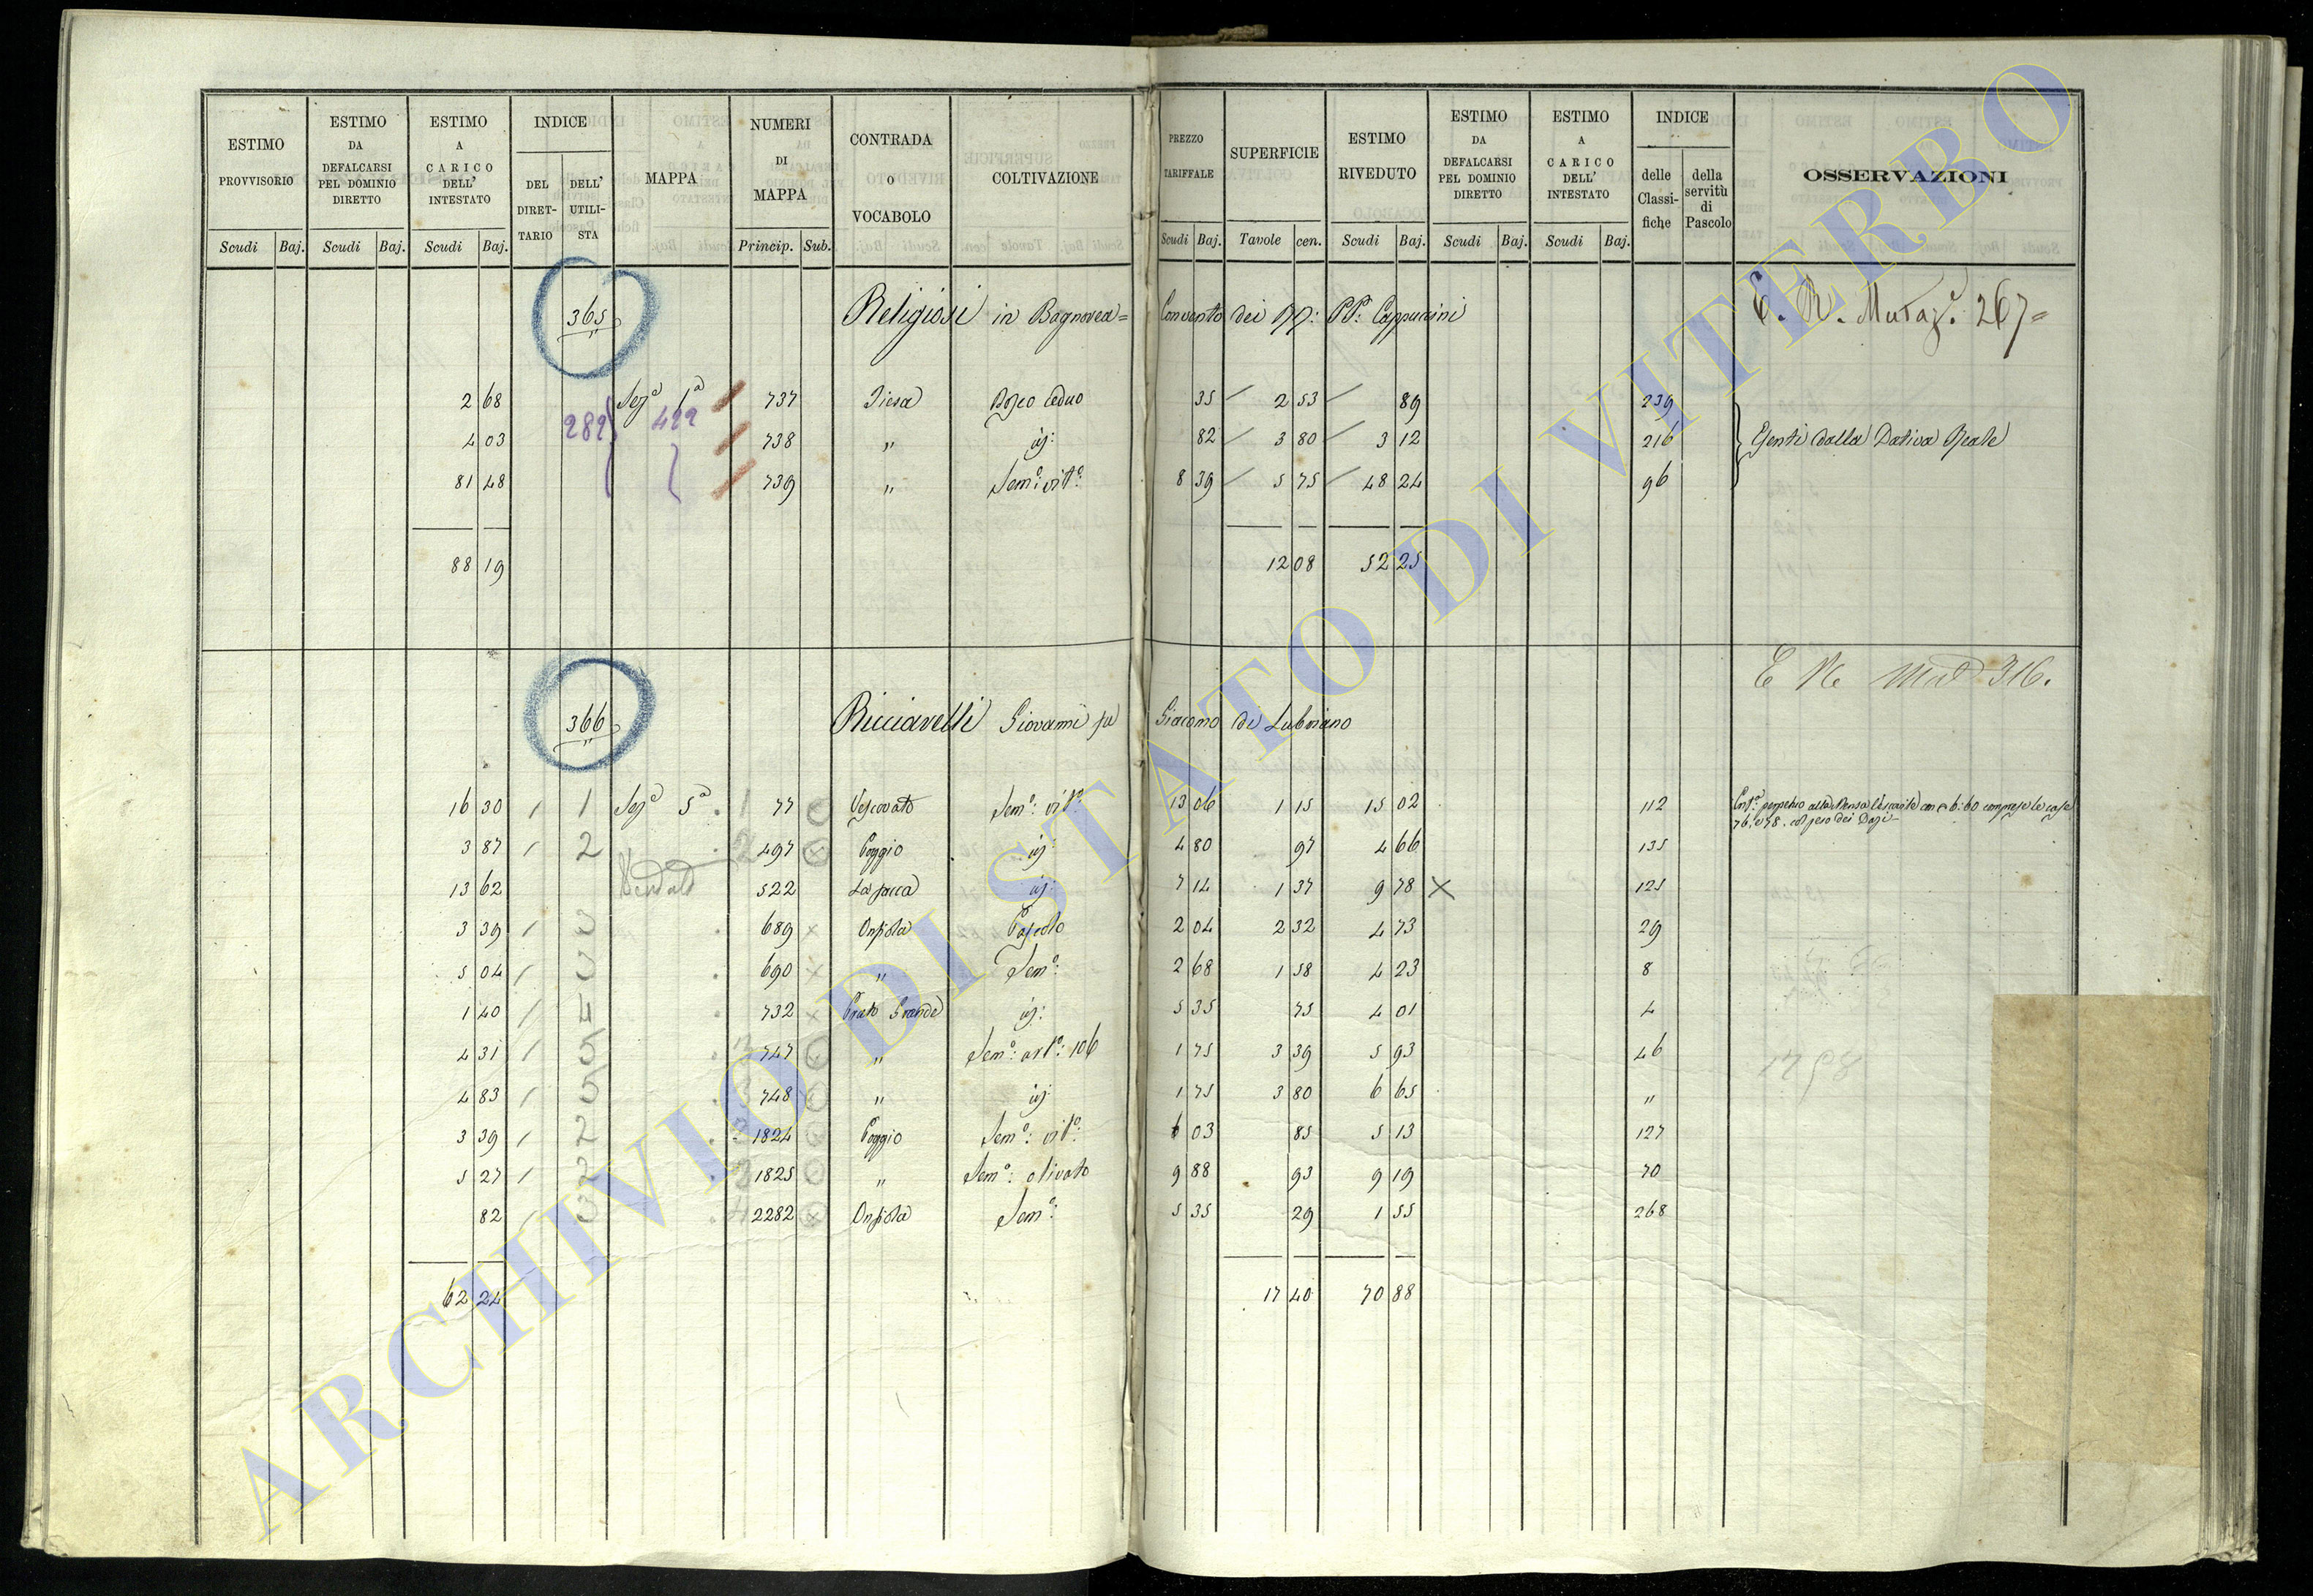 ESTIMO PROVVISORIO | ESTIMO DA DEFALCARSI PEL DOMINIO DIRETTO | ESTIMO A CARICO DELL' INTESTATO | INDICE | MAPPA | NUMERI DI MAPPA | CONTRADA O VOCABOLO | COLTIVAZIONE | PREZZO TARIFFALE | SUPERFICIE | ESTIMO RIVEDUTO | ESTIMO DA DEFALCARSI PEL DOMINIO DIRETTO | ESTIMO A CARICO DELL' INTESTATO | INDICE | OSSERVAZIONI
DEL DIRET-TARIO | DELL' UTILI-STA | delle Classi-fiche | della servitù di Pascolo
Scudi Baj. | Scudi Baj. | Scudi Baj. | Princip. Sub. | Scudi Baj. | Tavole cen. | Scudi Baj. | Scudi Baj. | Scudi Baj.
365 Religiosi in Bagnorea= Convento dei RR: PP: Cappuccini 267=
2 68 Sez.e 1a 737 Bosco Ceduo 35 2 53 89 239
282 422
4 03 738 " id: 82 3 80 3 12 216 Esenti dalla Dativa Reale
81 48 739 " Sem.o: vit.o: 8 39 5 75 48 24 96
88 19 12 08 52 25
316.
366 Ricciarelli Giovanni fu Giacomo di Lubriano
16 30 1 Sez.e 5a 1 77 Vescovato Sem.o: vit.o: 13 06 1 15 15 02 112
76. e 78. col peso dei Dazi
3 87 2 2 497 Poggio id: 4 80 97 4 66 135
13 62 522 id: 7 14 1 37 9 78 X 125
3 39 689 x 2 04 2 32 4 73 29
5 04 690 x " Sem.o: 2 68 1 58 4 23 8
1 40 732 x Prato Grande id: 5 35 75 4 01 4
4 31 747 " 1 75 3 39 5 93 46
4 83 748 " id: 1 75 3 80 6 65 "
3 39 2 1824 Poggio Sem.o: vit.o: 6 03 85 5 13 127
5 27 1825 " Sem.o: olivato 9 88 93 9 19 70
82 2282 Sem.o: 5 35 29 1 55 268
62 24 17 40 70 88
ARCHIVIO DI STATO DI VITERBO